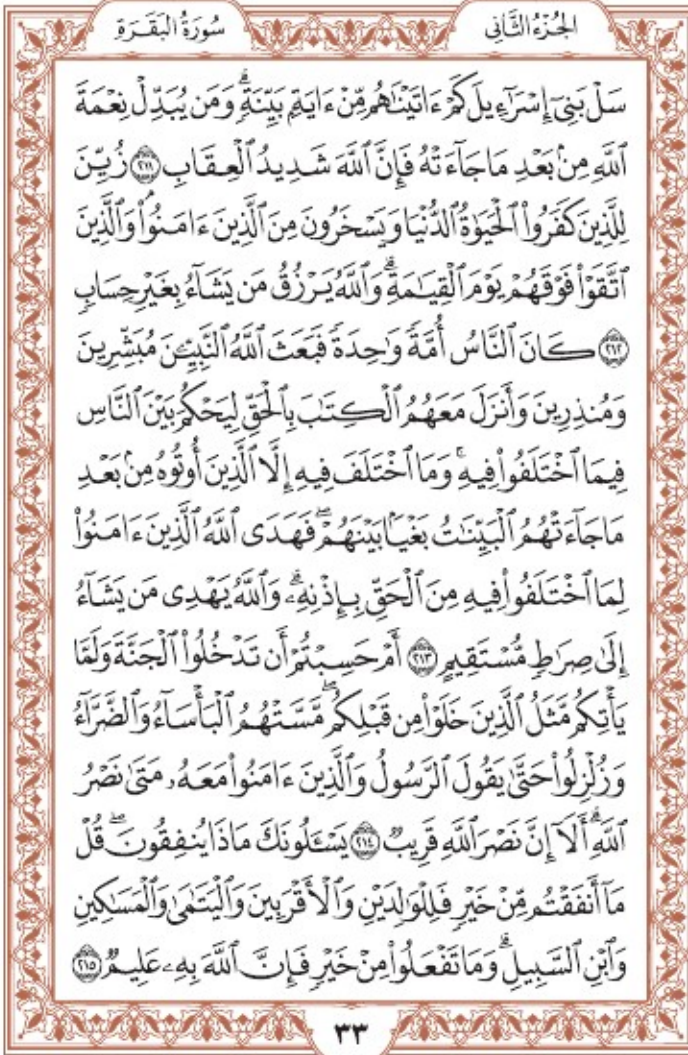 الجُزْءُ الثَّانِي سُورَةُ الْبَقَرَةِ
سَلْ بَنِىٓ إِسْرَٰٓءِيلَ كَمْ ءَاتَيْنَٰهُم مِّنْ ءَايَةٍۭ بَيِّنَةٍۗ وَمَن يُبَدِّلْ نِعْمَةَ
ٱللَّهِ مِنۢ بَعْدِ مَا جَآءَتْهُ فَإِنَّ ٱللَّهَ شَدِيدُ ٱلْعِقَابِ ۝٢١١ زُيِّنَ
لِلَّذِينَ كَفَرُوا۟ ٱلْحَيَوٰةُ ٱلدُّنْيَا وَيَسْخَرُونَ مِنَ ٱلَّذِينَ ءَامَنُوا۟ۘ وَٱلَّذِينَ
ٱتَّقَوْا۟ فَوْقَهُمْ يَوْمَ ٱلْقِيَٰمَةِۗ وَٱللَّهُ يَرْزُقُ مَن يَشَآءُ بِغَيْرِ حِسَابٍ
۝٢١٢ كَانَ ٱلنَّاسُ أُمَّةً وَٰحِدَةً فَبَعَثَ ٱللَّهُ ٱلنَّبِيِّۦنَ مُبَشِّرِينَ
وَمُنذِرِينَ وَأَنزَلَ مَعَهُمُ ٱلْكِتَٰبَ بِٱلْحَقِّ لِيَحْكُمَ بَيْنَ ٱلنَّاسِ
فِيمَا ٱخْتَلَفُوا۟ فِيهِۚ وَمَا ٱخْتَلَفَ فِيهِ إِلَّا ٱلَّذِينَ أُوتُوهُ مِنۢ بَعْدِ
مَا جَآءَتْهُمُ ٱلْبَيِّنَٰتُ بَغْيًۢا بَيْنَهُمْۖ فَهَدَى ٱللَّهُ ٱلَّذِينَ ءَامَنُوا۟
لِمَا ٱخْتَلَفُوا۟ فِيهِ مِنَ ٱلْحَقِّ بِإِذْنِهِۦۗ وَٱللَّهُ يَهْدِى مَن يَشَآءُ
إِلَىٰ صِرَٰطٍ مُّسْتَقِيمٍ ۝٢١٣ أَمْ حَسِبْتُمْ أَن تَدْخُلُوا۟ ٱلْجَنَّةَ وَلَمَّا
يَأْتِكُم مَّثَلُ ٱلَّذِينَ خَلَوْا۟ مِن قَبْلِكُمۖ مَّسَّتْهُمُ ٱلْبَأْسَآءُ وَٱلضَّرَّآءُ
وَزُلْزِلُوا۟ حَتَّىٰ يَقُولَ ٱلرَّسُولُ وَٱلَّذِينَ ءَامَنُوا۟ مَعَهُۥ مَتَىٰ نَصْرُ
ٱللَّهِۗ أَلَآ إِنَّ نَصْرَ ٱللَّهِ قَرِيبٌ ۝٢١٤ يَسْـَٔلُونَكَ مَاذَا يُنفِقُونَۖ قُلْ
مَآ أَنفَقْتُم مِّنْ خَيْرٍ فَلِلْوَٰلِدَيْنِ وَٱلْأَقْرَبِينَ وَٱلْيَتَٰمَىٰ وَٱلْمَسَٰكِينِ
وَٱبْنِ ٱلسَّبِيلِۗ وَمَا تَفْعَلُوا۟ مِنْ خَيْرٍ فَإِنَّ ٱللَّهَ بِهِۦ عَلِيمٌ ۝٢١٥
٣٣